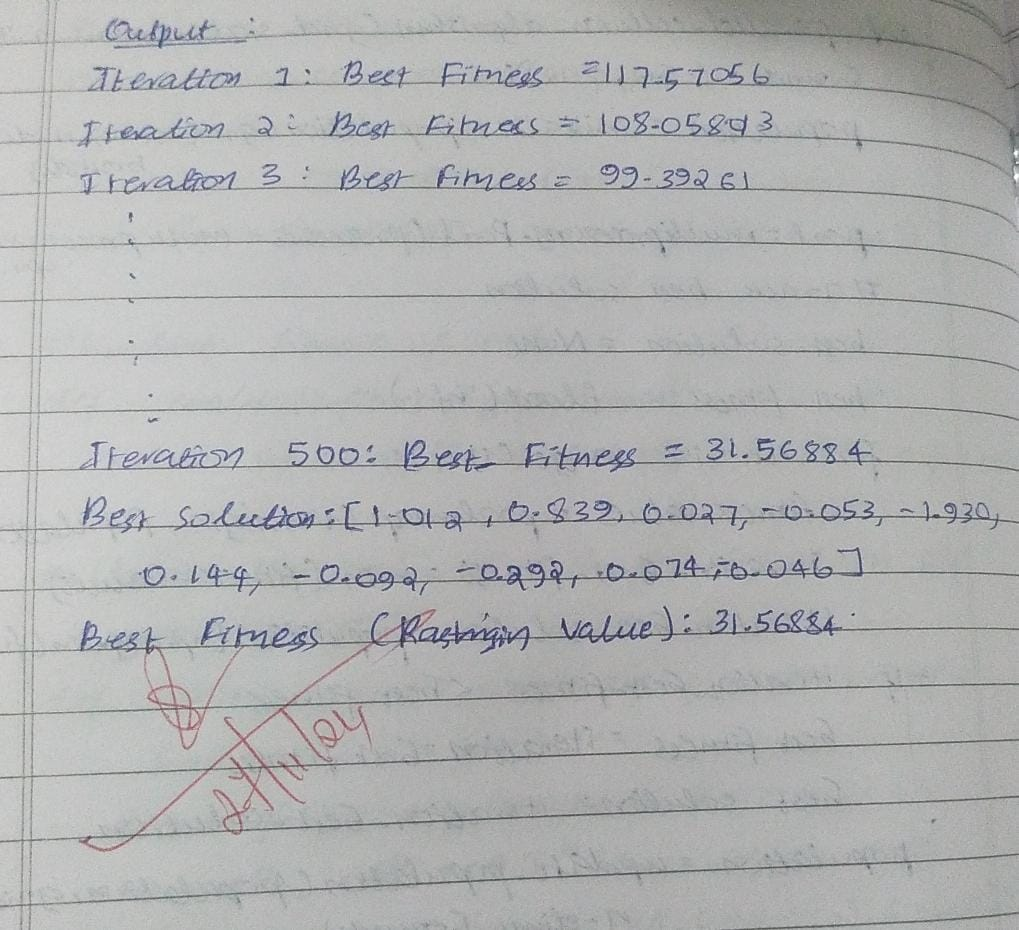 Output :
Iteration 1: Best Fitness = 117.57056
Iteration 2: Best Fitness = 108.05893
Iteration 3: Best Fitness = 99.39261
Iteration 500: Best Fitness = 31.56884
Best solution: [1.012, 0.839, 0.027, -0.053, -1.930,
0.144, -0.092, -0.292, 0.074, -0.046]
Best Fitness (Rastrigin value): 31.56884
27/11/24